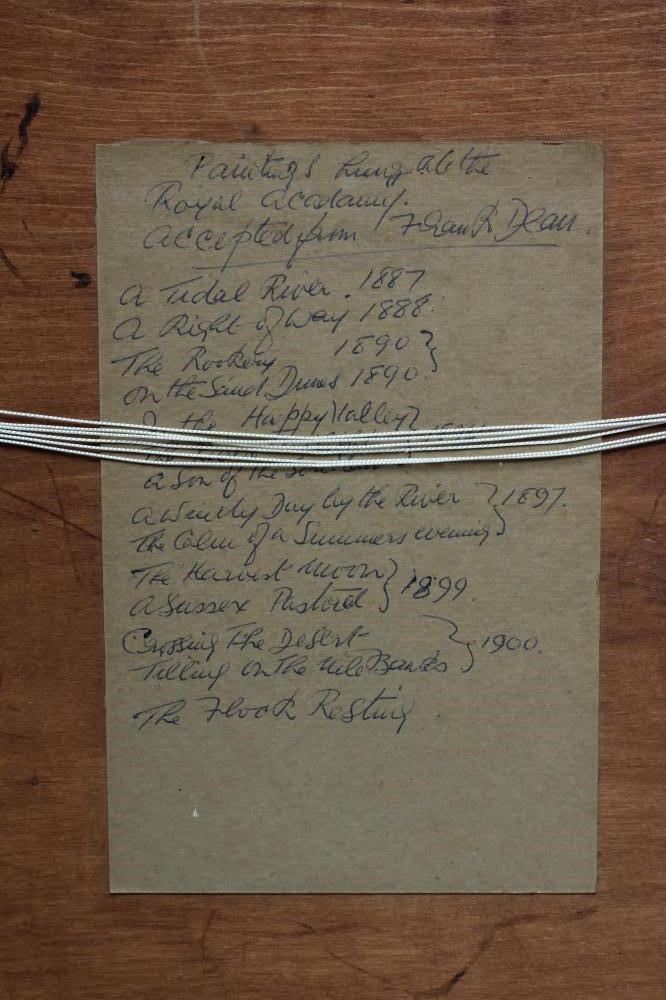 Paintings hung at the
Royal Academy.
Accepted from Frank Dean.
A Tidal River. 1887
A Right of Way 1888.
The Rookery 1890 }
On the Sand Dunes 1890 }
the Happy Valley
The
a Son of the
a Windy Day by the River } 1897.
The Calm of a Summers evening }
The Harvest Moon } 1899.
A Sussex Pastoral }
Crossing The Desert } 1900.
Tilling on The Nile Banks }
The Flock Resting.